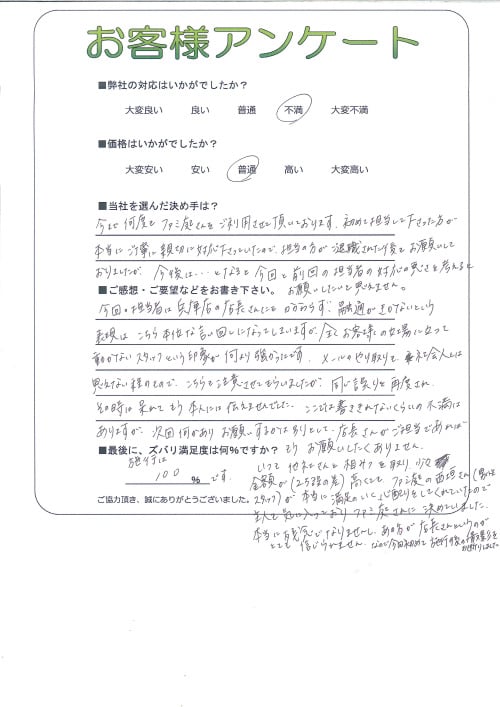 お客様アンケート
■弊社の対応はいかがでしたか？
大変良い 良い 普通 不満 大変不満
■価格はいかがでしたか？
大変安い 安い 普通 高い 大変高い
■当社を選んだ決め手は？
今まで何度もファミ庭さんをご利用させて頂いております。初めて担当して下さった方が
本当にご丁寧に親切に対応下さっていたので、担当の方が退職された後もお願いして
おりましたが、今後は…となると今回と前回の担当者の対応の悪さを考えると
お願いしたいと思えません。
■ご感想・ご要望などをお書き下さい。
今回の担当者は兵庫店の店長さんにもかかわらず、融通がきかないという
表現はこちら本位な言い回しになってしまいますが、全くお客様の立場に立って
動かないスタッフという印象が何より強かったです。メールのやり取りも、社会人とは
思えない様のもので、こちらも注意させてもらいましたが、同じ誤りを再度され、
その時は呆れてもう本人には伝えませんでした。ここでは書ききれないくらいの不満は
ありますが、次回何かありお願いするかは別として、店長さんがご担当であれば
もうお願いしたくありません。
■最後に、ズバリ満足度は何%ですか？
施行は
100 % です。
いつも他社さんと相みつを取り、
金額が(高くても、ファミ庭の西垣さん(男の
スタッフ)が本当に満足のいく心配りをしてくれていたので
主人も気に入っておりファミ庭さんに決めていました。
本当に残念でなりませんし、あの方が店長さんというのが
とても信じられません。なので今回初めて施行後の
ご協力頂き、誠にありがとうございました。